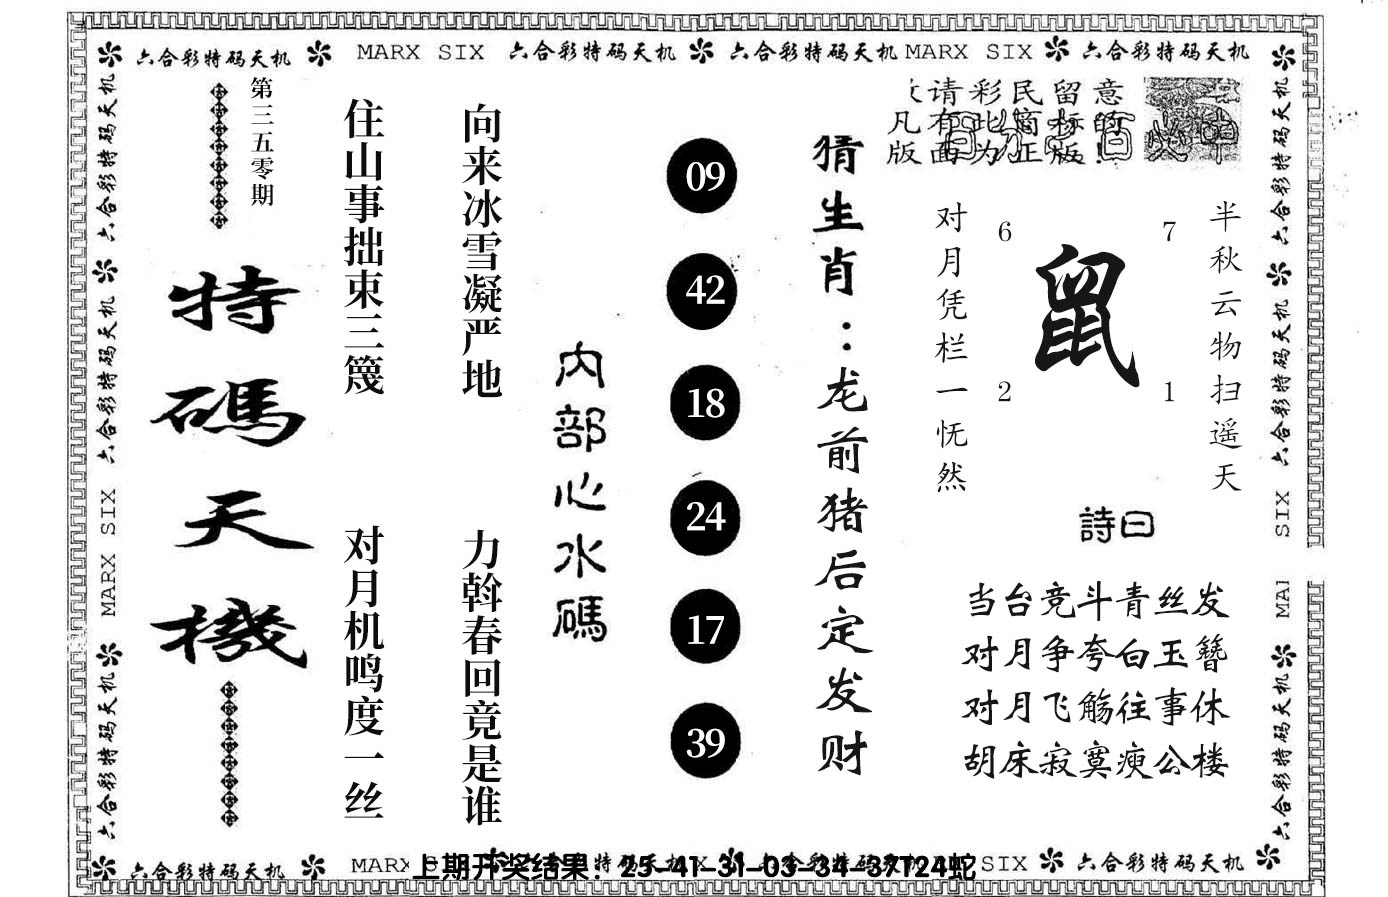 六合彩特码天机 MARX SIX 六合彩特码天机 六合彩特码天机 MARX SIX 六合彩特码天机
六合彩特码天机
六合彩特码天机
MARX SIX
六合彩特码天机
第三五零期
特碼天機
住山事拙束三篾
对月机鸣度一丝
向来冰雪凝严地
力斡春回竟是谁
内部心水碼
09
42
18
24
17
39
猜生肖：龙前猪后定发财
请彩民留意
凡有此商标的
版面为正版!
对月凭栏一怃然
6
7
鼠
2
1
半秋云物扫遥天
詩曰
当台竞斗青丝发
对月争夸白玉簪
对月飞觞往事休
胡床寂寞瘐公楼
六合彩特码天机
六合彩特码天机
SIX
MA
六合彩特码天机
六合彩特码天机 MARX
上期开奖结果：25-41-31-03-34-37T24蛇
SIX 六合彩特码天机